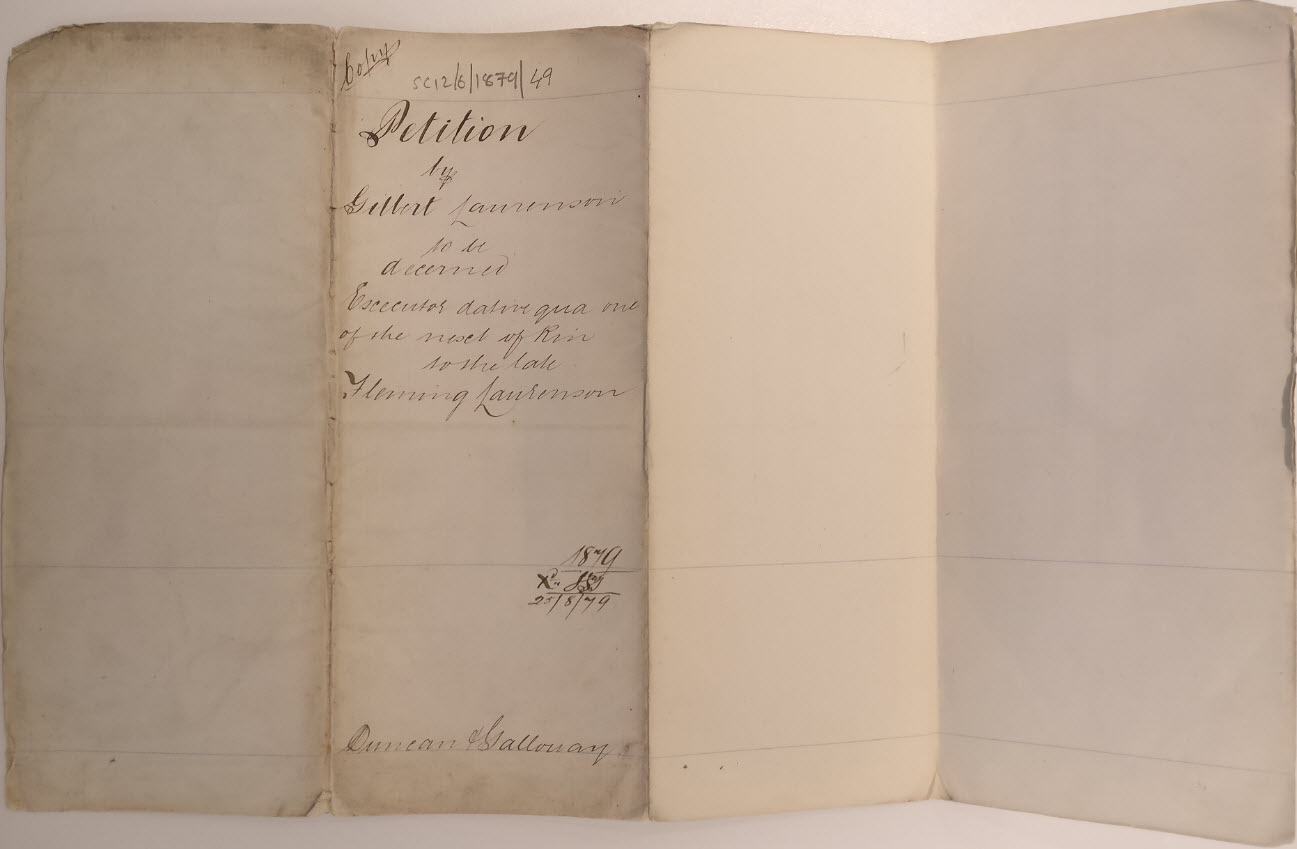 Copy
SC12/6/1879/49
Petition
by
Gilbert Laurenson
to be
decerned
Executor dative qua one
of the next of Kin
to the late
Fleming Laurenson
1879
25/8/79
Duncan & Galloway